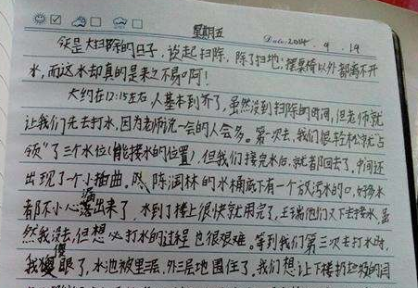 星期五 Date. 2014. 9. 19
今天是大扫除的日子，说起扫除，除了扫地，摆桌椅以外都离不开
水，而这水却真的是来之不易啊！
大约在12:15左右人基本到齐了，虽然没到扫除的时间，但老师就
让我们先去打水，因为老师说一会的人会多。第一次去，我们很轻松就"占
领"了三个水位(能接水的位置)，但我们接完水后，就都回去了，中间还
出现了一个小插曲。陈润林的水桶底下有一个放污水的口，好多水
都不小心洒出来了，水到了楼上很快就用完了，王瑞他们又下去接水，虽
然我没去，但想必打水的过程也很艰难。等到我们第三次去打水时，
我傻眼了，水池被里三层，外三层地围住了。我们想让下楼扔垃圾的同